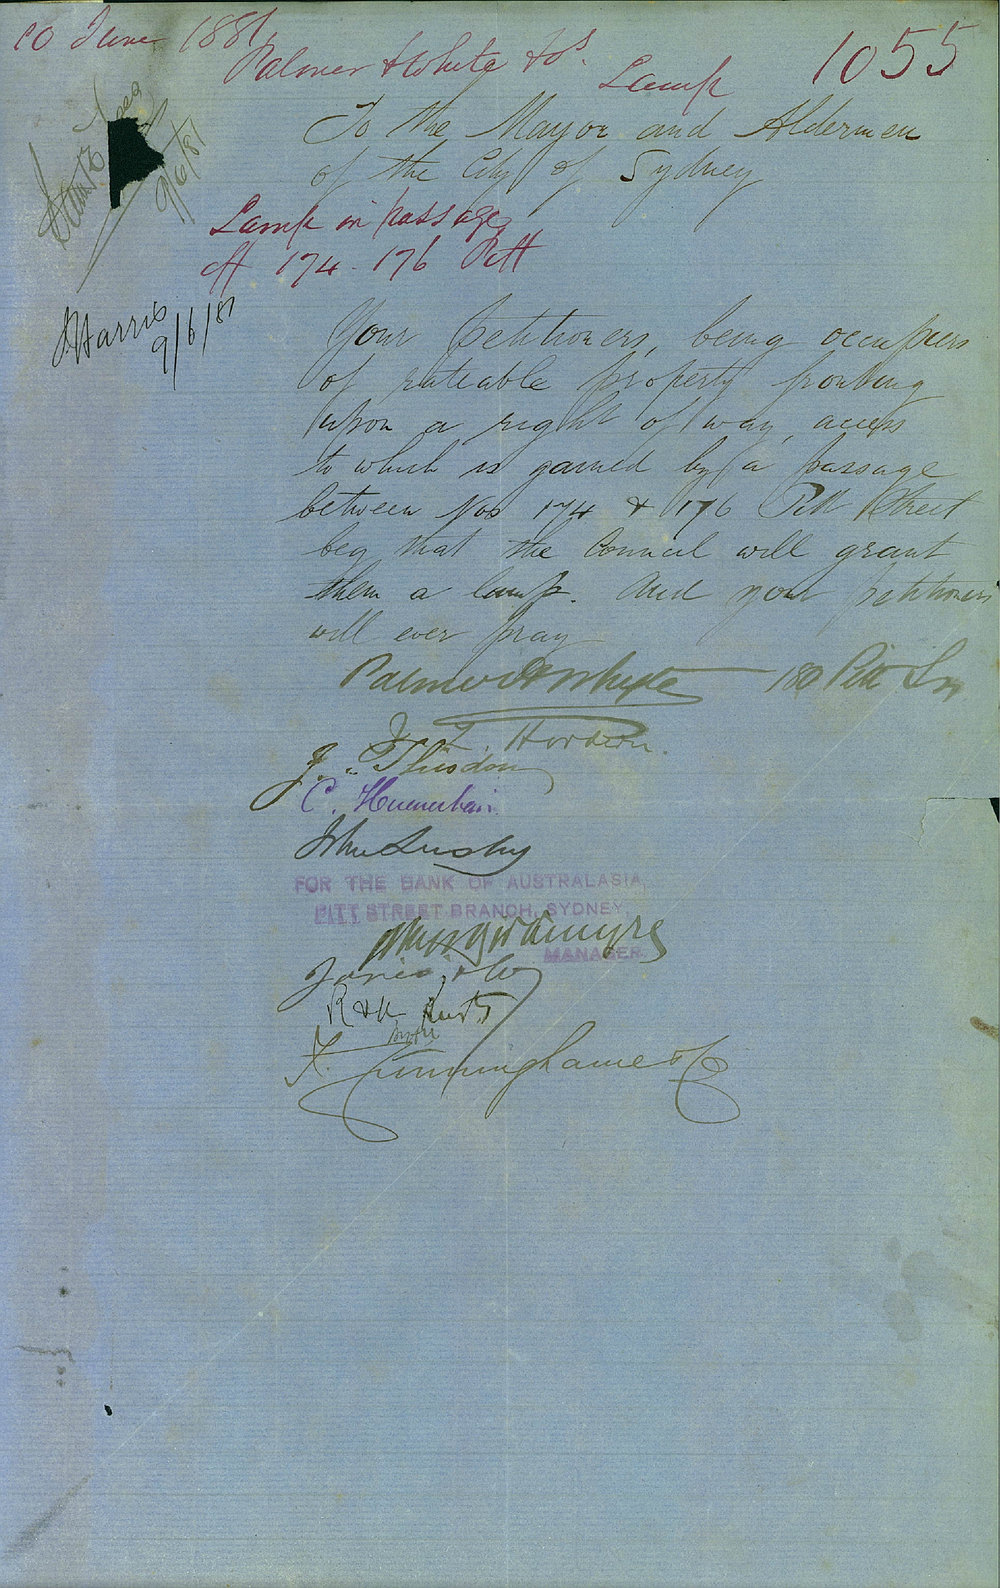 10 June 1881
Palmer & White &os
Lamp
1055
To the Mayor and Aldermen
of the City of Sydney
9/6/81
Lamp in passage
off 174 - 176 Pitt
J Harris
9/6/81
Your petitioners, being occupiers
of rateable property fronting
upon a right of way, access
to which is gained by a passage
between Nos 174 & 176 Pitt Street
beg that the Council will grant
them a lamp. And your petitioners
will ever pray
Palmer & Whyte 180 Pitt St
Hordern.
C. Huenerbein
John Lusby
FOR THE BANK OF AUSTRALASIA,
PITT STREET BRANCH, SYDNEY,
MANAGER
Jones & Co
F. Cunninghame & Co